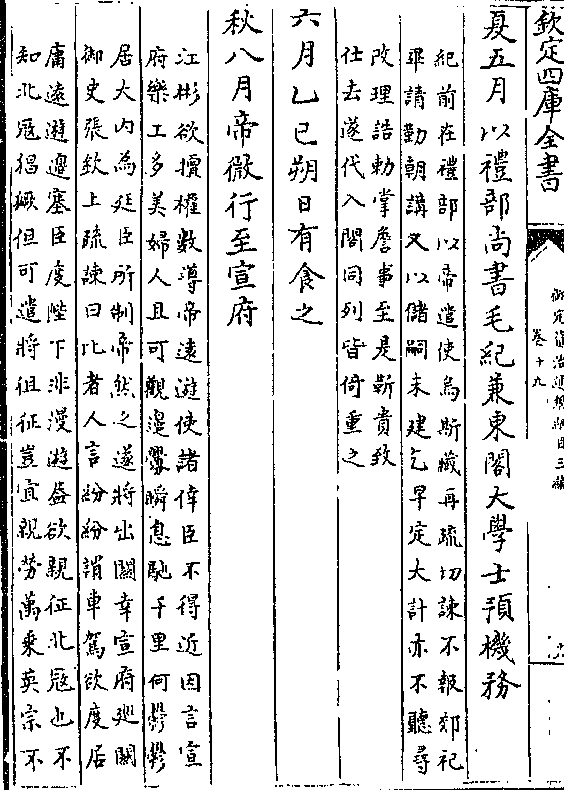 欽定四庫全書
御定資治通鑑綱目三編
卷十九
夏五月以禮部尚書毛紀兼東閣大學士預機務
紀前在禮部以帝遣使烏斯藏再疏切諫不報郊祀
畢請勤朝講又以儲嗣未建乞早定大計亦不聽尋
改理誥勅掌詹事至是靳貴致
仕去遂代入閣同列皆倚重之
六月乙巳朔日有食之
秋八月帝微行至宣府
江彬欲擅權數導帝遠遊使諸倖臣不得近因言宣
府樂工多美婦人且可觀邊釁瞬息馳千里何鬱鬱
居大内為廷臣所制帝然之遂將出關幸宣府廵關
御史張欽上疏諫曰比者人言紛紛謂車駕欲度居
庸遠遊邊塞臣度陛下非漫遊葢欲親征北寇也不
知北寇猖獗但可遣將徂征豈宜親勞萬乘英宗不